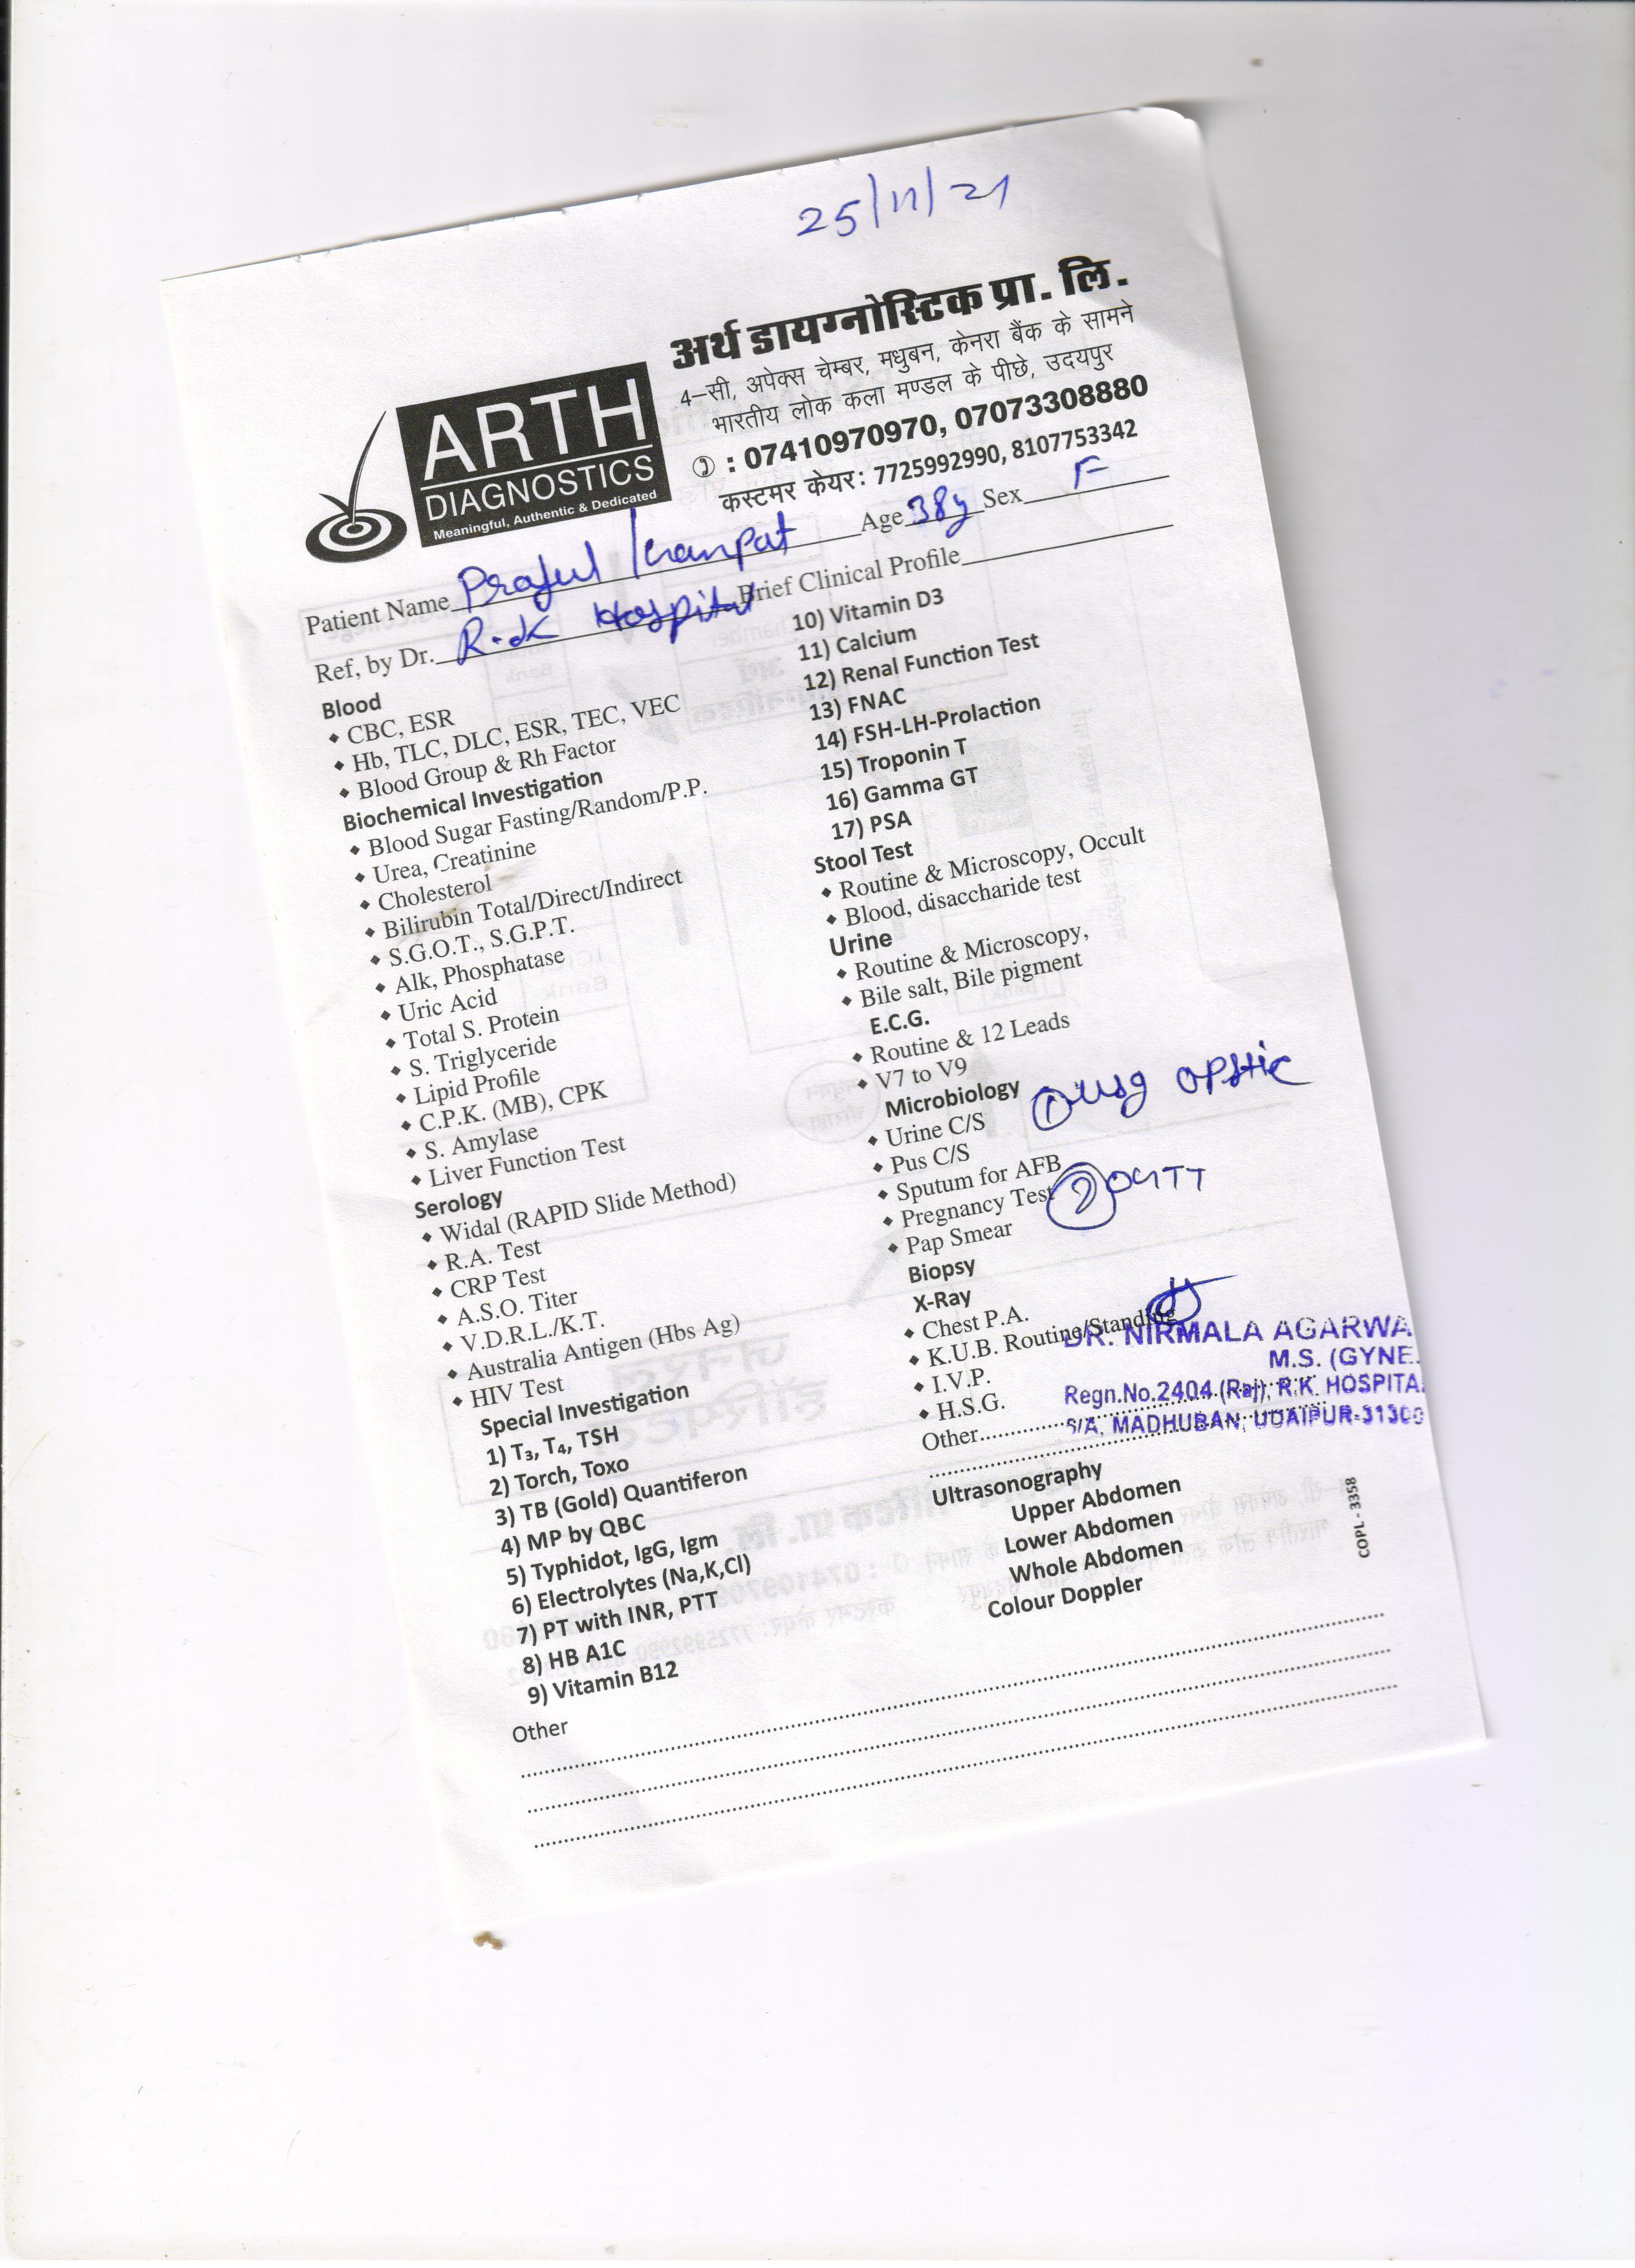 25/11/21
अर्थ डायग्नोस्टिक प्रा. लि.
4-सी, अपेक्स चेम्बर, मधुबन, केनरा बैंक के सामने
भारतीय लोक कला मण्डल के पीछे, उदयपुर
: 07410970970, 07073308880
कस्टमर केयर: 7725992990, 8107753342
ARTH
DIAGNOSTICS
Meaningful, Authentic & Dedicated
Patient Name Praful Age 38y Sex F
Ref, by Dr. R.K Hospital Brief Clinical Profile
Blood
♦ CBC, ESR
♦ Hb, TLC, DLC, ESR, TEC, VEC
♦ Blood Group & Rh Factor
Biochemical Investigation
♦ Blood Sugar Fasting/Random/P.P.
♦ Urea, Creatinine
♦ Cholesterol
♦ Bilirubin Total/Direct/Indirect
♦ S.G.O.T., S.G.P.T.
♦ Alk, Phosphatase
♦ Uric Acid
♦ Total S. Protein
♦ S. Triglyceride
♦ Lipid Profile
♦ C.P.K. (MB), CPK
♦ S. Amylase
♦ Liver Function Test
Serology
♦ Widal (RAPID Slide Method)
♦ R.A. Test
♦ CRP Test
♦ A.S.O. Titer
♦ V.D.R.L./K.T.
♦ Australia Antigen (Hbs Ag)
♦ HIV Test
Special Investigation
1) T₃, T₄, TSH
2) Torch, Toxo
3) TB (Gold) Quantiferon
4) MP by QBC
5) Typhidot, IgG, Igm
6) Electrolytes (Na,K,Cl)
7) PT with INR, PTT
8) HB A1C
9) Vitamin B12
Other
10) Vitamin D3
11) Calcium
12) Renal Function Test
13) FNAC
14) FSH-LH-Prolaction
15) Troponin T
16) Gamma GT
17) PSA
Stool Test
♦ Routine & Microscopy, Occult
♦ Blood, disaccharide test
Urine
♦ Routine & Microscopy,
♦ Bile salt, Bile pigment
E.C.G.
♦ Routine & 12 Leads
♦ V7 to V9
Microbiology
♦ Urine C/S
♦ Pus C/S
♦ Sputum for AFB
♦ Pregnancy Test
♦ Pap Smear
① USG
②
Biopsy
X-Ray
♦ Chest P.A.
♦ K.U.B. Routine/Standing
♦ I.V.P.
♦ H.S.G.
Other
DR. NIRMALA AGARWA
M.S. (GYNE.
Regn.No.2404 (Raj), R.K. HOSPITA
5/A, MADHUBAN, UDAIPUR-31300
Ultrasonography
Upper Abdomen
Lower Abdomen
Whole Abdomen
Colour Doppler
COPL - 3358